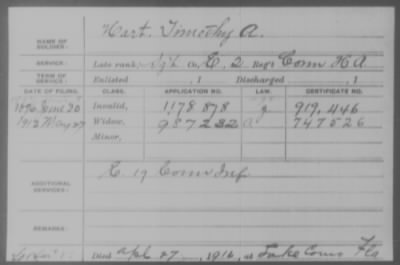 NAME OF SOLDIER: Hart, Timothy A.
SERVICE: Late rank, Sgt Co. E, 2 Reg't Conn H A
TERM OF SERVICE: Enlisted , 1 Discharged , 1
DATE OF FILING. CLASS. APPLICATION NO. LAW. CERTIFICATE NO.
1896 June 30 Invalid, 1,178,878 919,446
1912 May 27 Widow, 987232 747526
Minor,
ADDITIONAL SERVICES: E 19 Conn Inf
REMARKS:
Died Apl 27, 1912, at Lake Como Fla